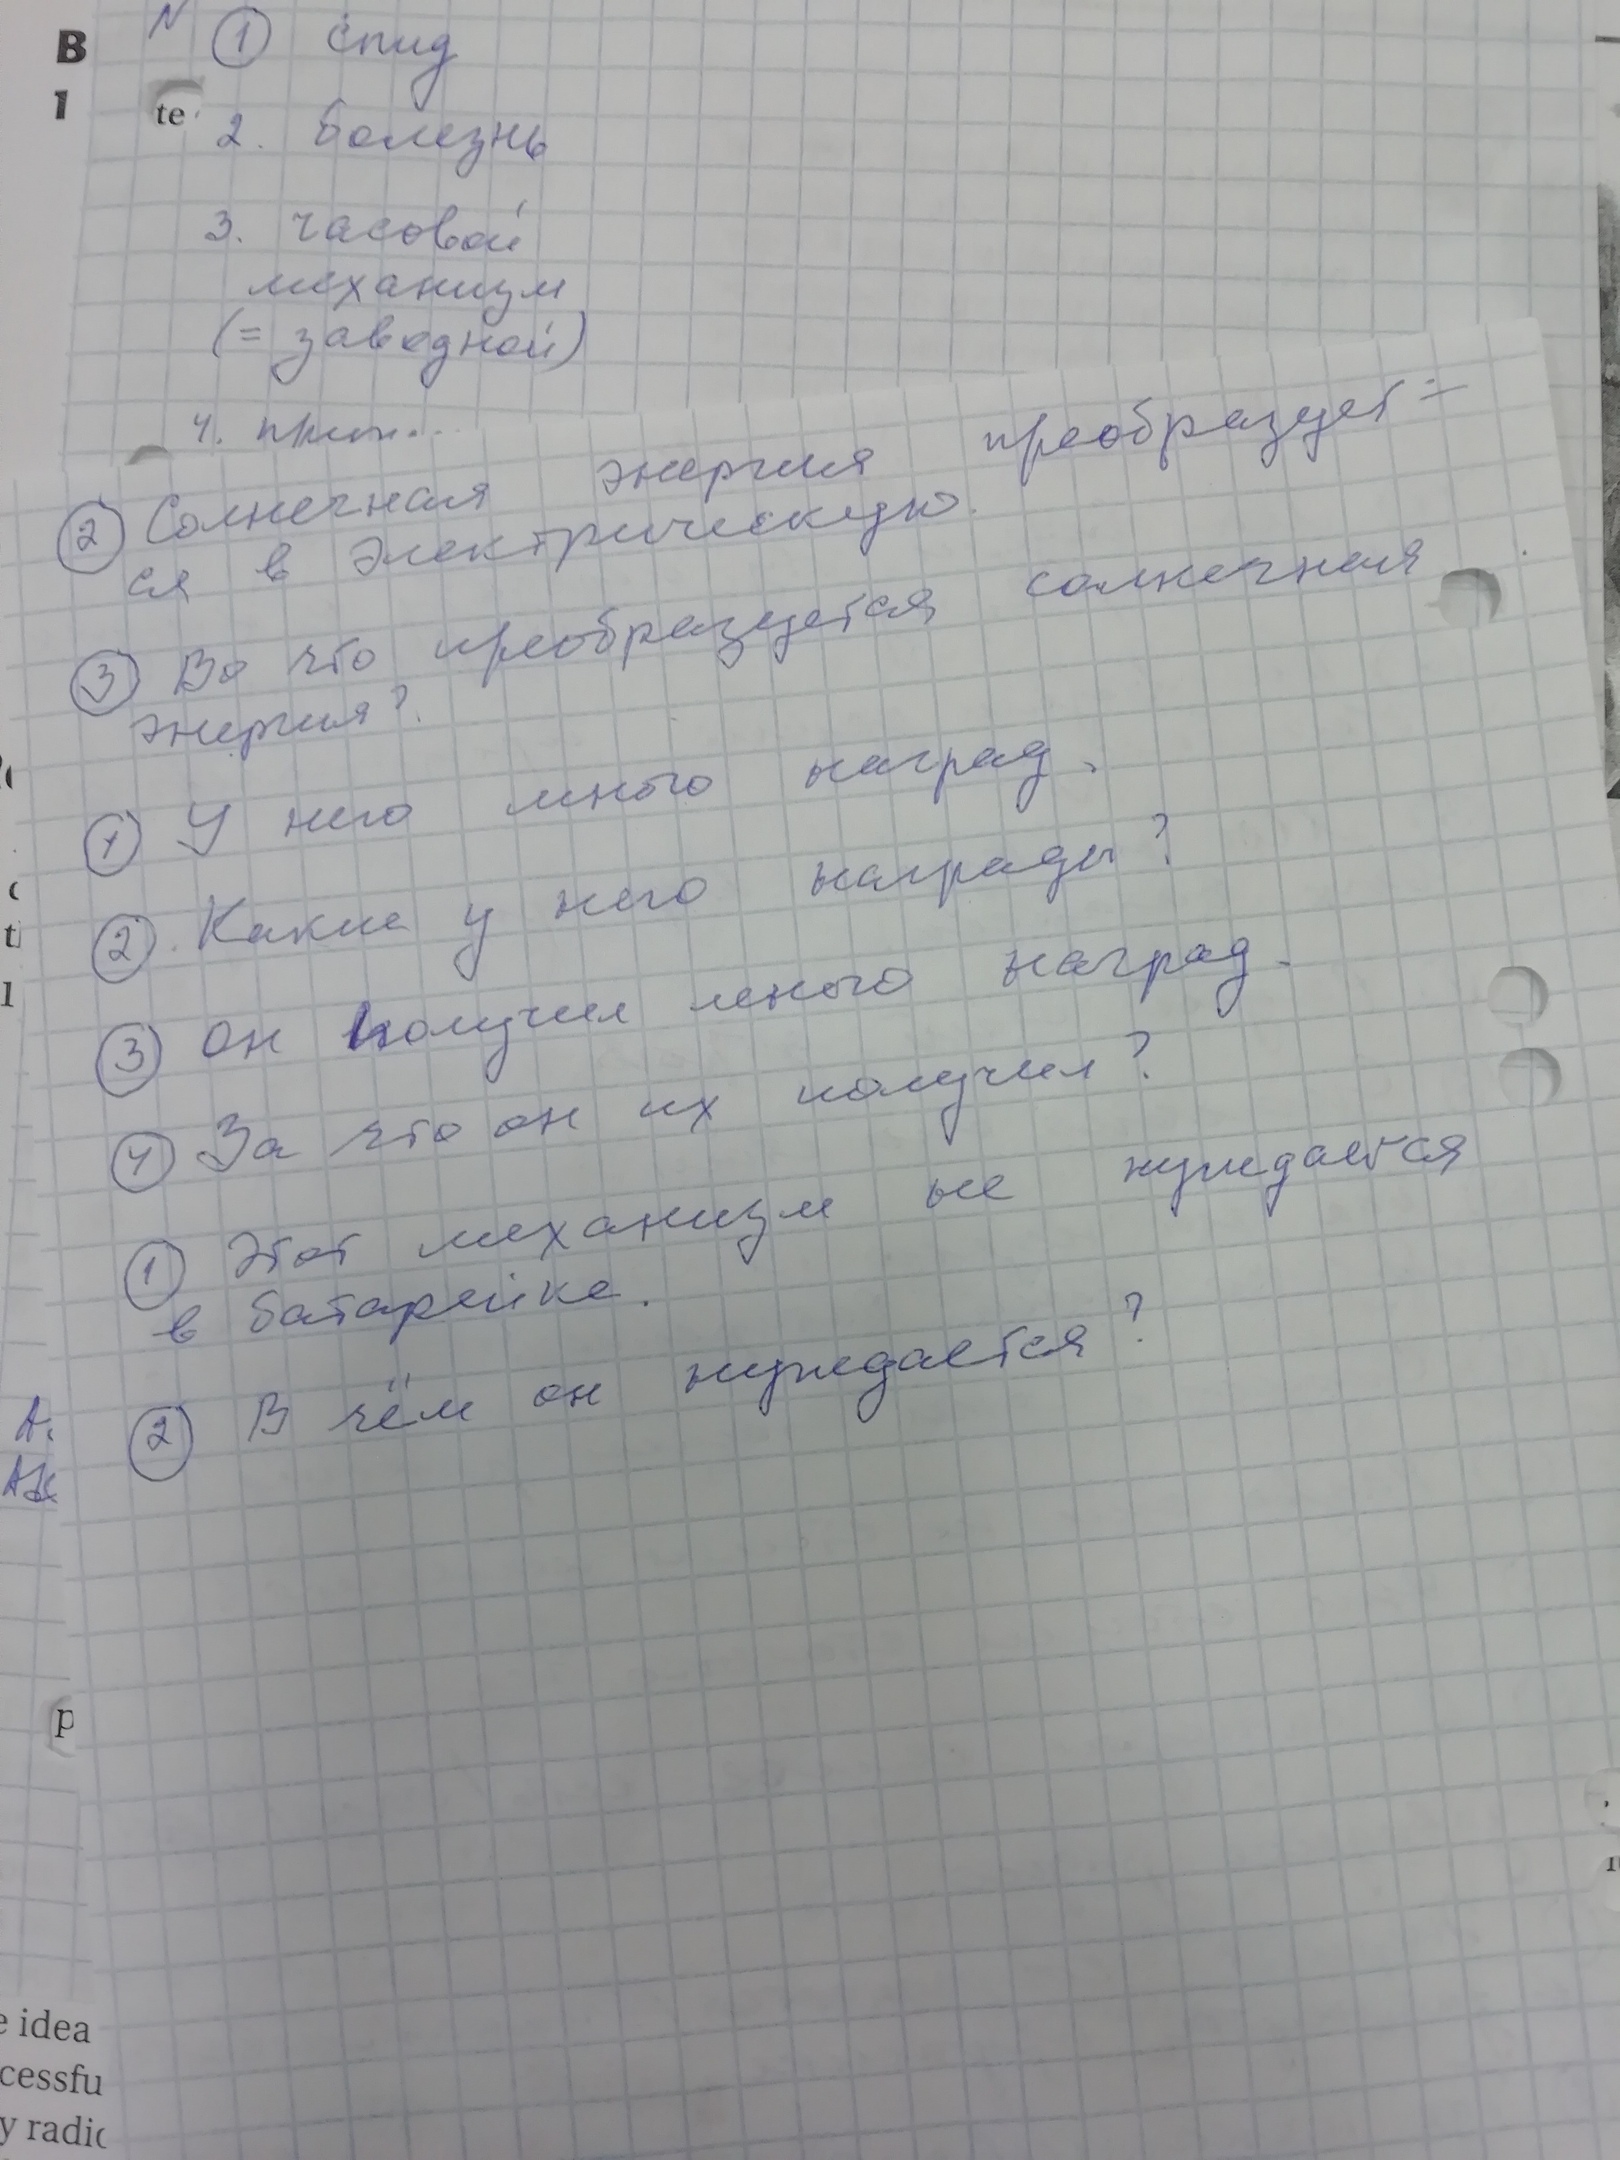 B N ① спид
1 te 2. болезнь
3. часовой
механизм
(= заводной)
4.
② Солнечная энергия преобразует=
ся в электрическую.
③ Во что преобразуется солнечная
энергия?
① У него много наград.
② Какие у него награды?
③ Он получил много наград.
④ За что он их получил?
① Этот механизм не нуждается
в батарейке.
② В чём он нуждается?
A.
p
e idea
cessfu
y radio